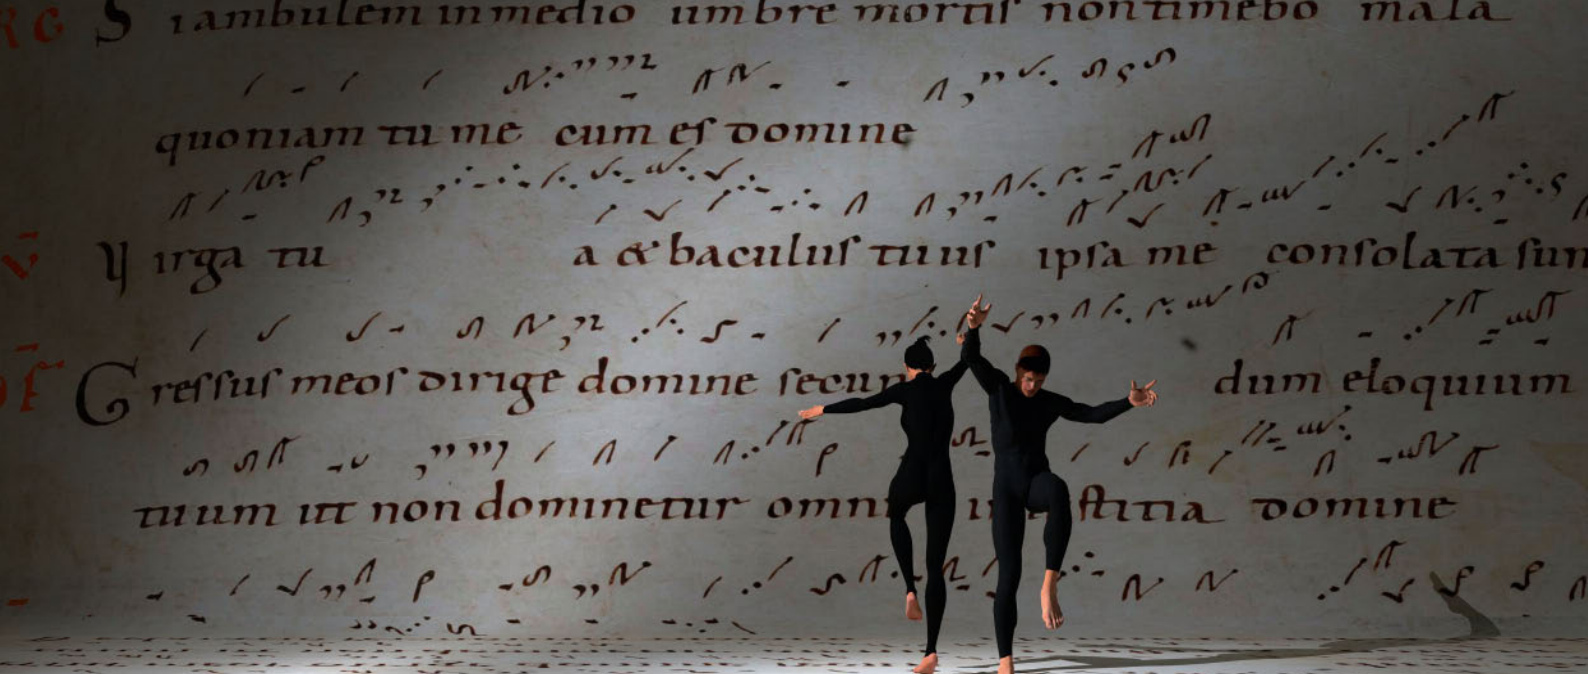 RG S i ambulem in medio umbre mortiſ non timebo mala
quoniam tu me cum eſ domine
V̄ Virga tu a & baculuſ tuuſ ipſa me conſolata ſun
Greſſuſ meoſ dirige domine ſecun dum eloquium
tuum ut non dominetur omni in ſtitia domine